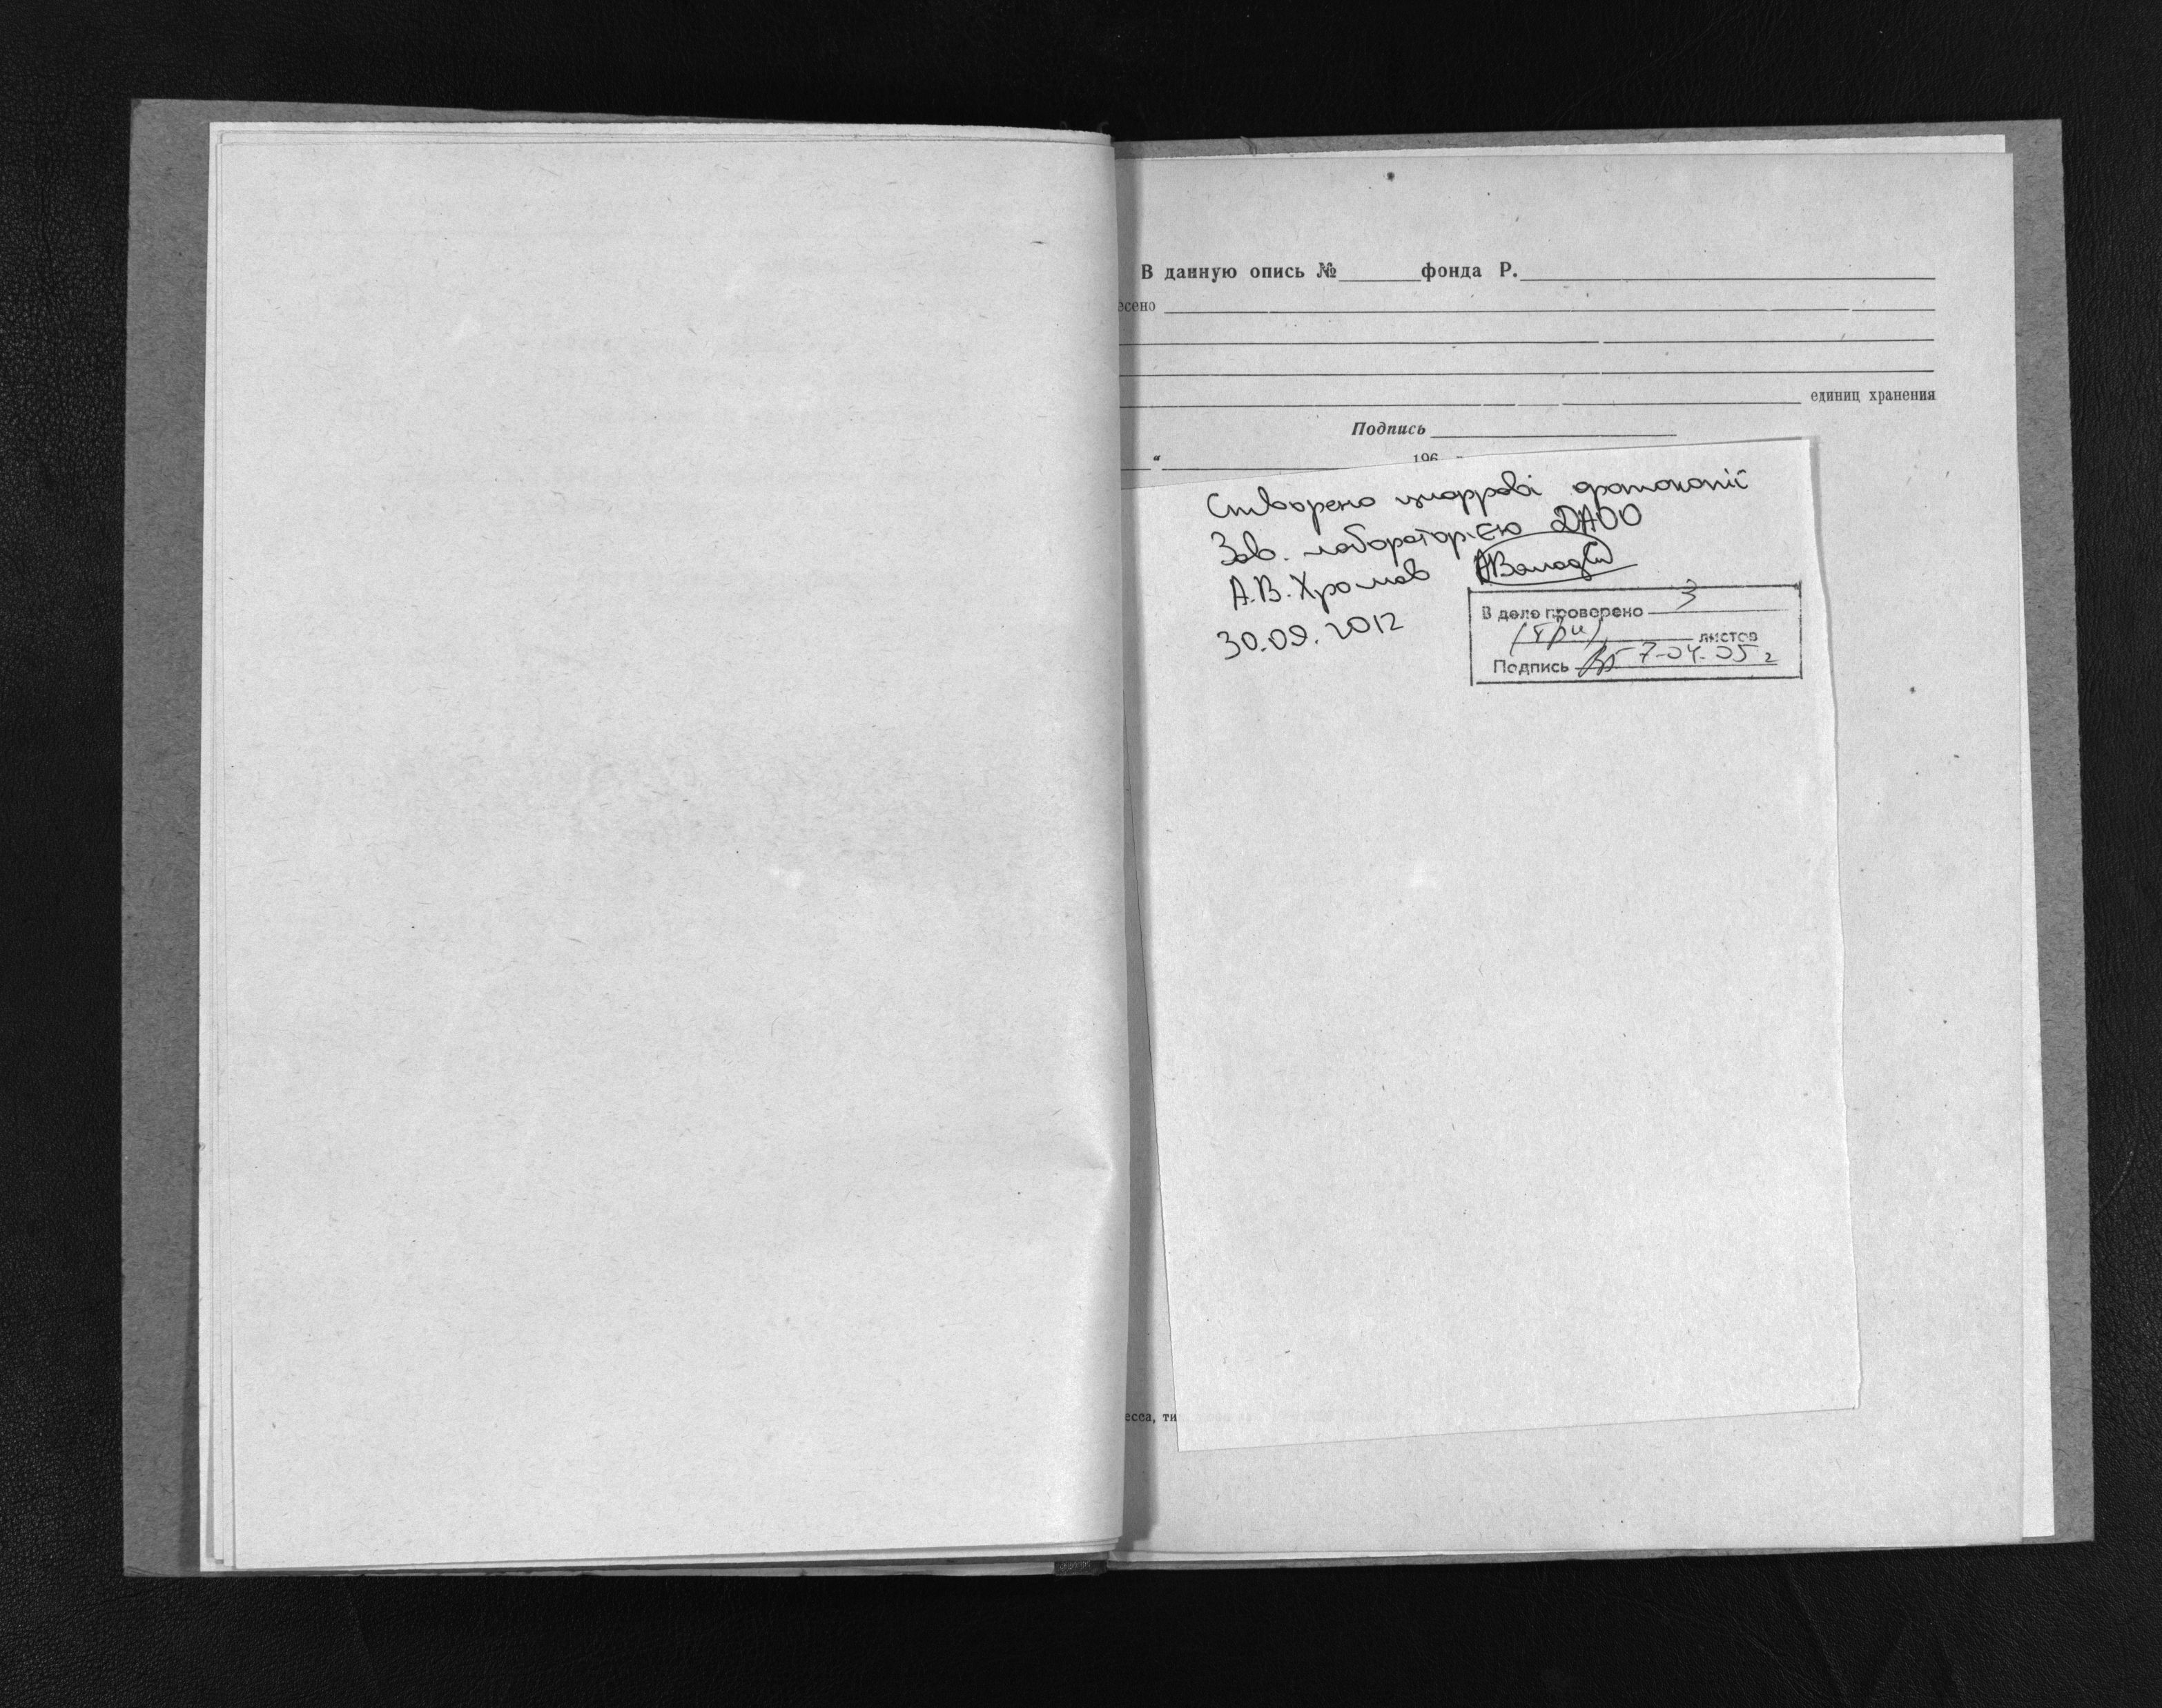 В данную опись №______фонда Р.______
есено
единиц хранения
Подпись
"______196
Створено цифрові фотокопії
Зав. лабораторією ДАОО
А.В. Хромов
30.09.2012
В деле проверено 3
(три) листов
Подпись 7-04-05 г
есса, ти